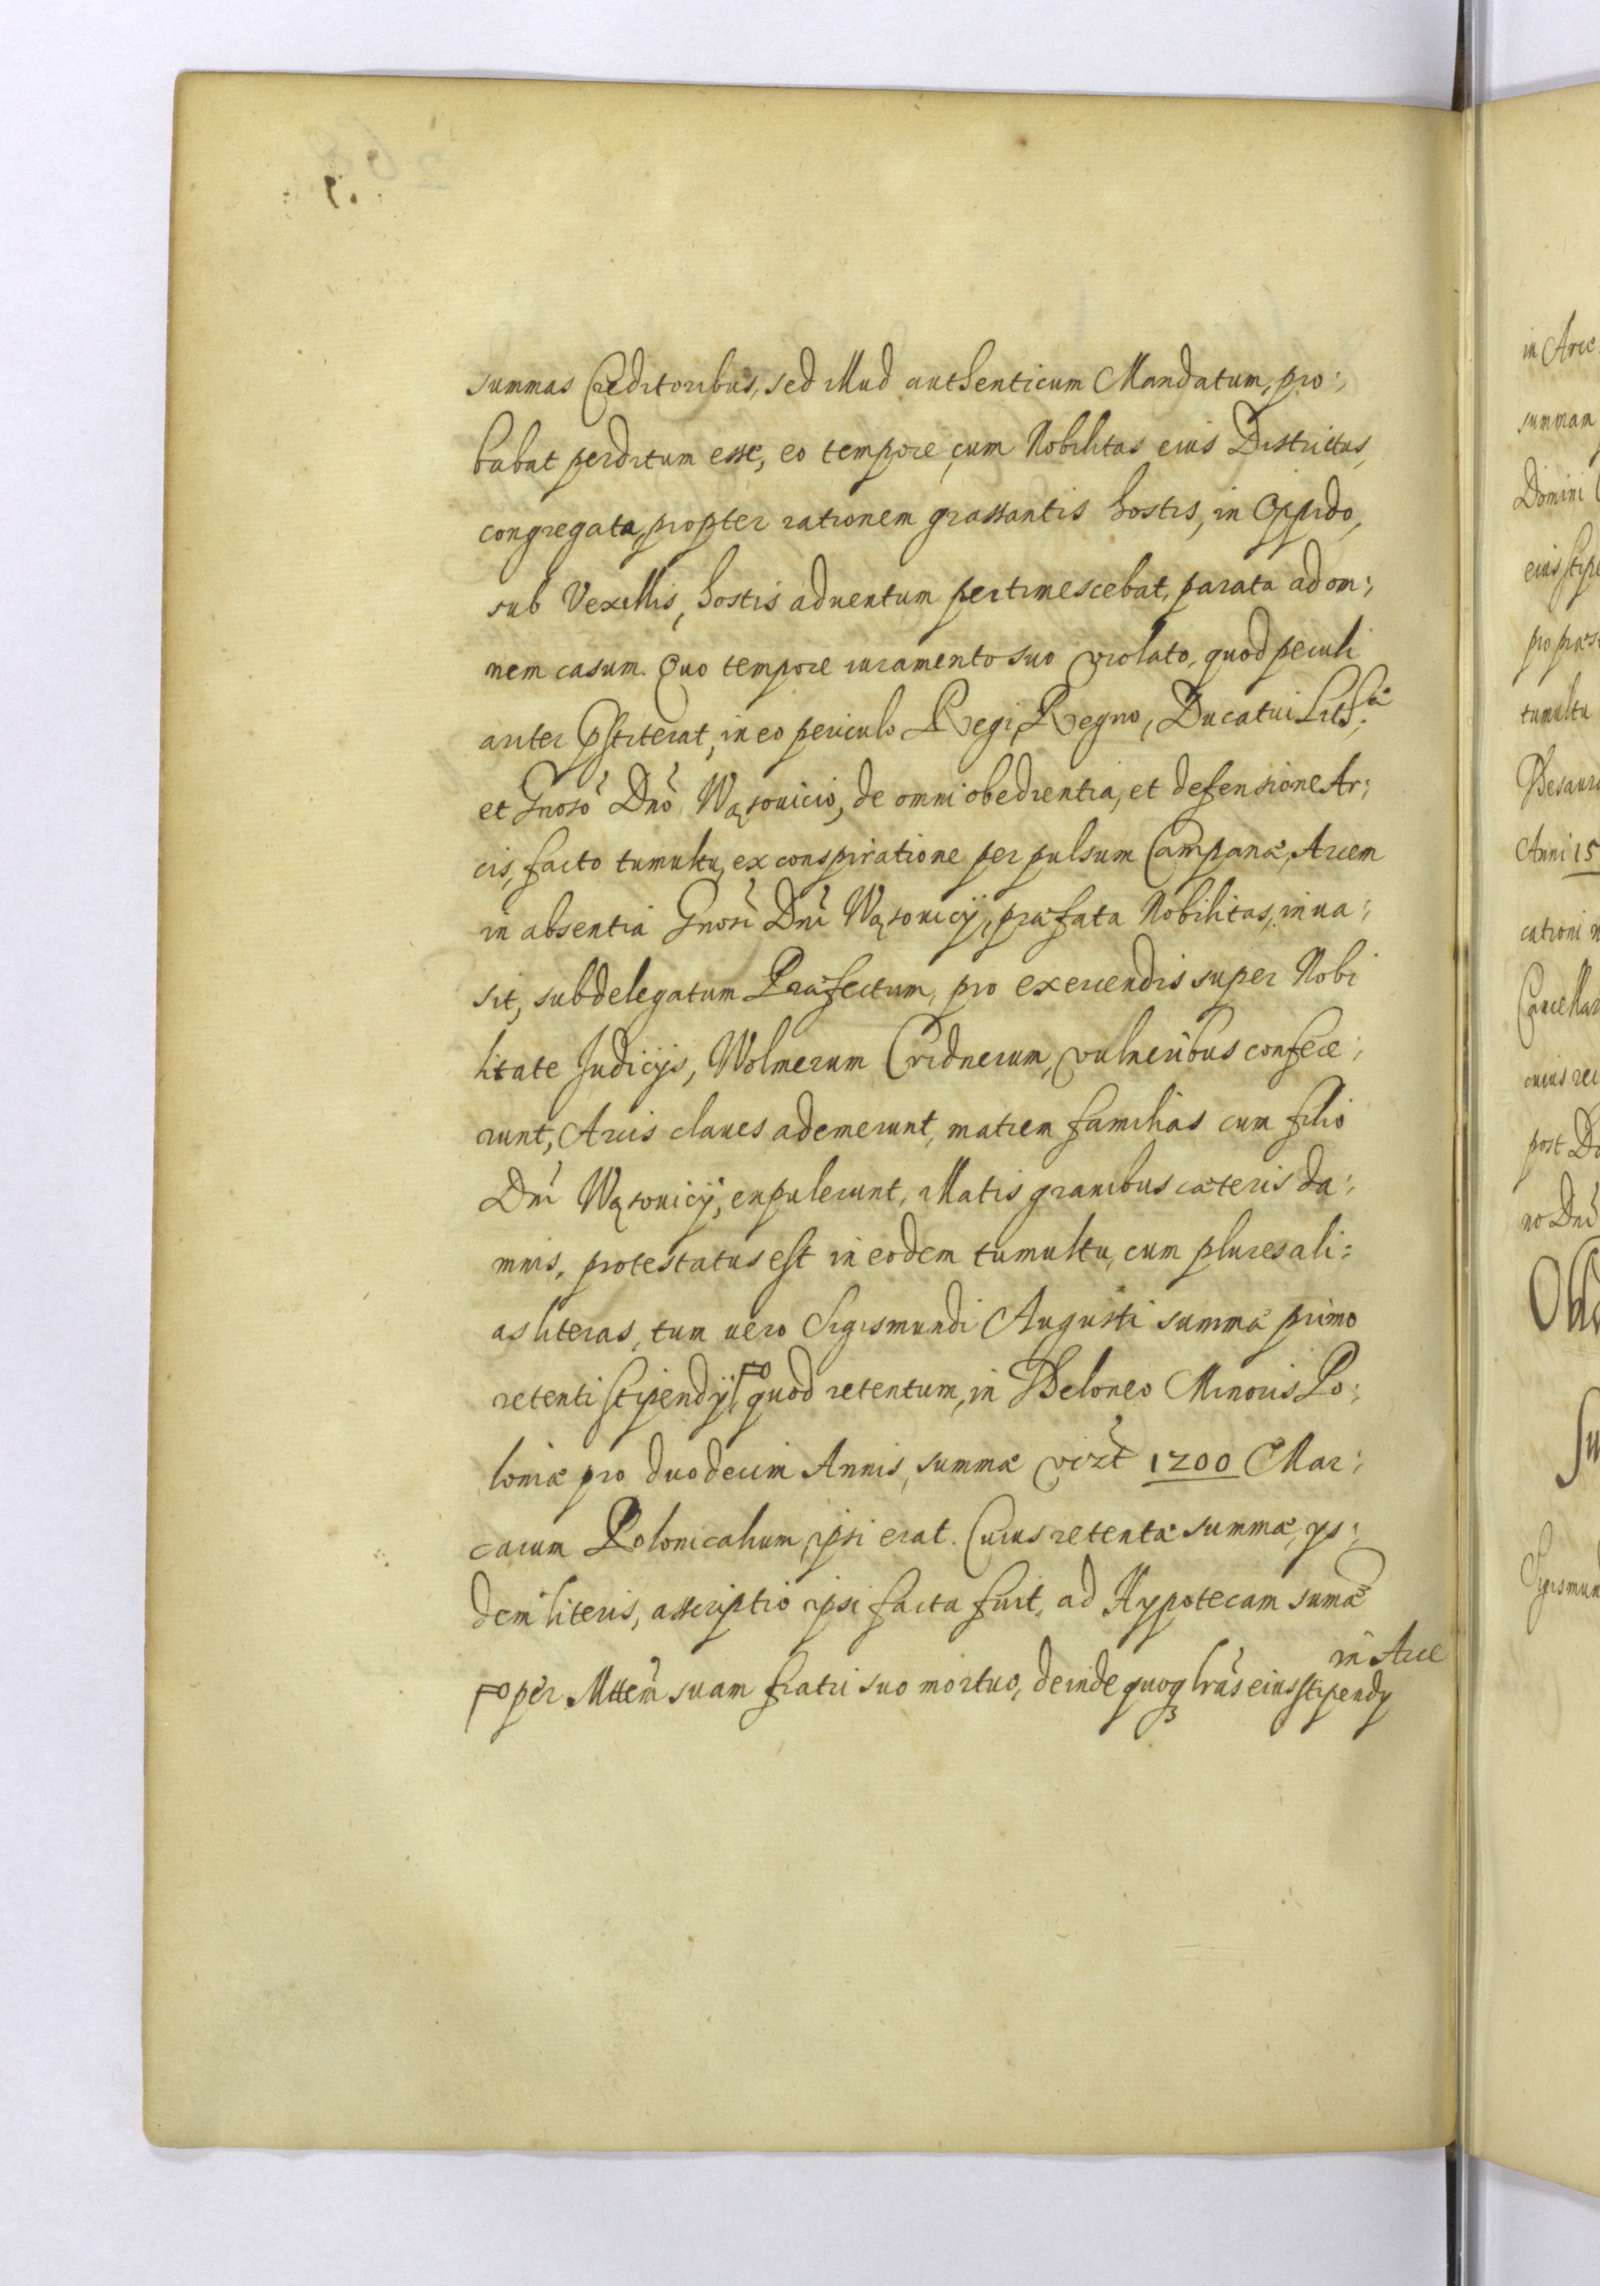 summas Creditoribus, sed illud authenticum Mandatum, pro:,
babat perditum esse, eo tempore, cum Nobilitas eius Districtus,
congregata, propter rationem grassantis hostis, in Oppido,
sub Vexillis, hostis aduentum pertimescebat, parata ad om:,
nem casum. Quo tempore iuramento suo violato, quod peculi
ariter pstiterat, in eo periculo Regi, Regno, Ducatui Lith:æ
et Gnoso Dno Wąsouicio, de omni obedientia, et defensione Ar:,
cis, facto tumultu, ex conspiratione per pulsum Campanæ, Arcem
in absentia Gnosi Dni Wąsouicij, præfata Nobilitas, inua:,
sit, subdelegatum Præfectum, pro exercendis super Nobi
litate Judicijs, Wolmerum Cridnerum, vulneribus confece:,
runt, Arcis claues ademerunt, matrem familias cum filio
Dni Wąsouicij, expulerunt, illatis grauibus cæteris da:,
mnis, protestatus est in eodem tumultu, cum plures ali:
as literas, tum uero Sigismundi Augusti summæ primo
retenti stipendij, quod retentum, in Theloneo Minoris Po:,
loniæ pro duodecim Annis, summæ vizt 1200 Mar:,
carum Polonicalium, ipsi erat. Cuius retentæ summæ, ys:,
dem literis, asscriptio ipsi facta fuit, ad Hypotecam sumæ
in Arce
per Mttem suam fratri suo mortuo, deinde quoqз lras eius stipendy